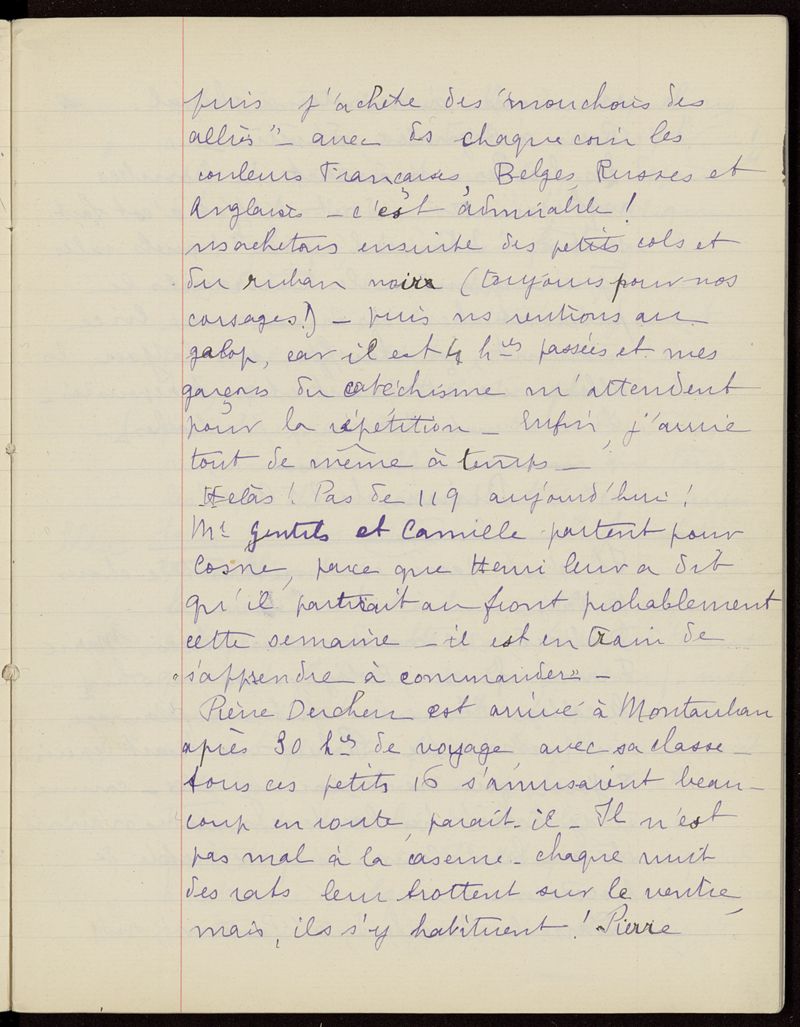 puis j'achète des "mouchoirs des
alliés" – avec ds chaque coin les
couleurs Françaises, Belges, Russes et
Anglaises – c'est admirable !
ns achetons ensuite des petits cols et
du ruban noir (toujours pour nos
corsages !) – puis ns rentrons au
galop, car il est 4 hres passées et mes
garçons du catéchisme m'attendent
pour la répétition – Enfin, j'arrive
tout de même à temps –
Hélas ! Pas de 119 aujourd'hui !
Mr Gentils et Camille partent pour
Cosne, parce que Henri leur a dit
qu'il partirait au front probablement
cette semaine – il est en train de
"s'apprendre à commander" –
Pierre est arrivé à Montauban
après 30 hres de voyage, avec sa classe –
tous ces petits 16 s'amusaient beau-
coup en route, parait-il – Il n'est
pas mal à la caserne – chaque nuit
des rats leur trottent sur le ventre,
mais, ils s'y habituent ! Pierre